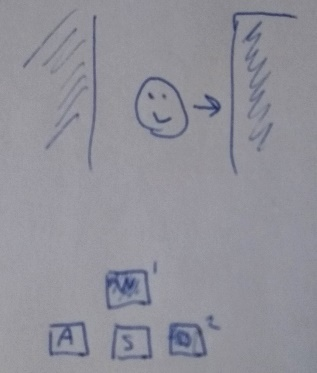 W 1
A S D 2